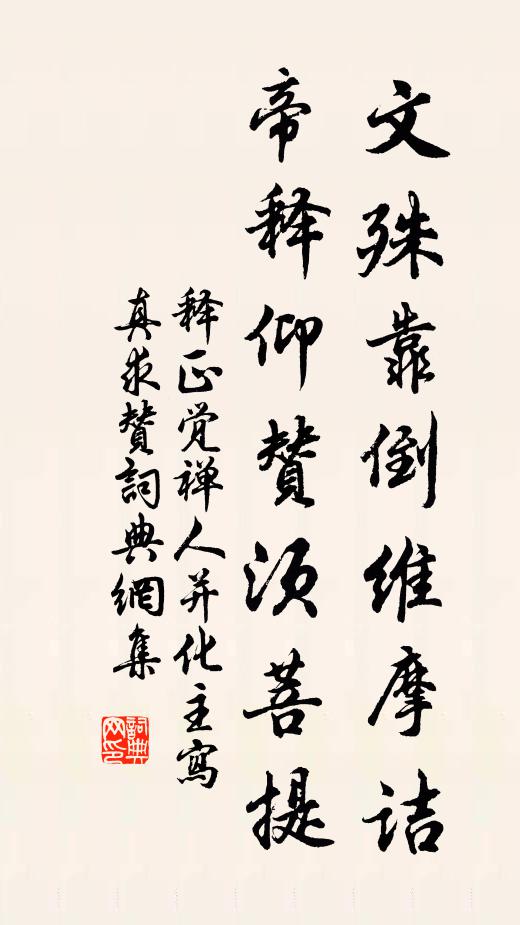 文殊靠倒维摩诘
帝释仰赞须菩提
释正觉禅人并化主寫
真求贊詞典網集
詞典网印